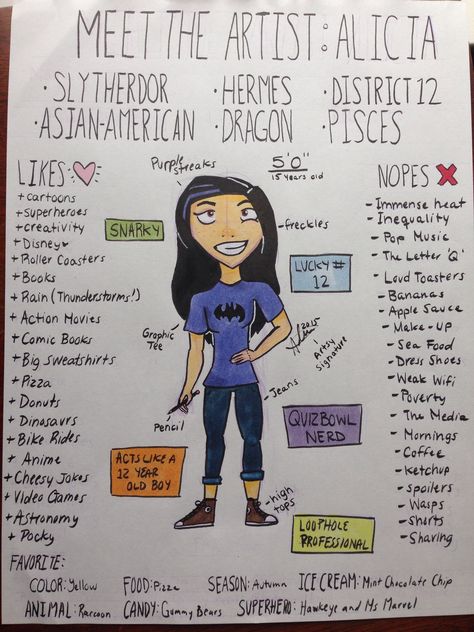 MEET THE ARTIST: ALICIA
·SLYTHERDOR ·HERMES ·DISTRICT 12
·ASIAN-AMERICAN ·DRAGON ·PISCES
LIKES
+cartoons
+superheroes
+creativity
+Disney
+Roller Coasters
+Books
+Rain (Thunderstorms!)
+Action Movies
+Comic Books
+Big sweatshirts
+Pizza
+Donuts
+Dinosaurs
+Bike Rides
+Anime
+Cheesy Jokes
+Video Games
+Astronomy
+Pocky
Purple streaks
5'0"
15 years old
freckles
SNARKY
LUCKY #
12
Graphic
Tee
2015
Artsy
signature
Jeans
Pencil
QUIZBOWL
NERD
ACTS LIKE A
12 YEAR
OLD BOY
high
tops
LOOPHOLE
PROFESSIONAL
NOPES
-Immense heat
-Inequality
-Pop Music
-The Letter 'Q'
-Loud Toasters
-Bananas
-Apple Sauce
-Make-Up
-Sea Food
-Dress Shoes
-Weak Wifi
-Poverty
-The Media
-Mornings
-Coffee
-Ketchup
-spoilers
-Wasps
-Shorts
-Sharing
FAVORITE:
COLOR: Yellow FOOD: Pizza SEASON: Autumn ICE CREAM: Mint Chocolate Chip
ANIMAL: Raccoon CANDY: Gummy Bears SUPERHERO: Hawkeye and Ms Marvel